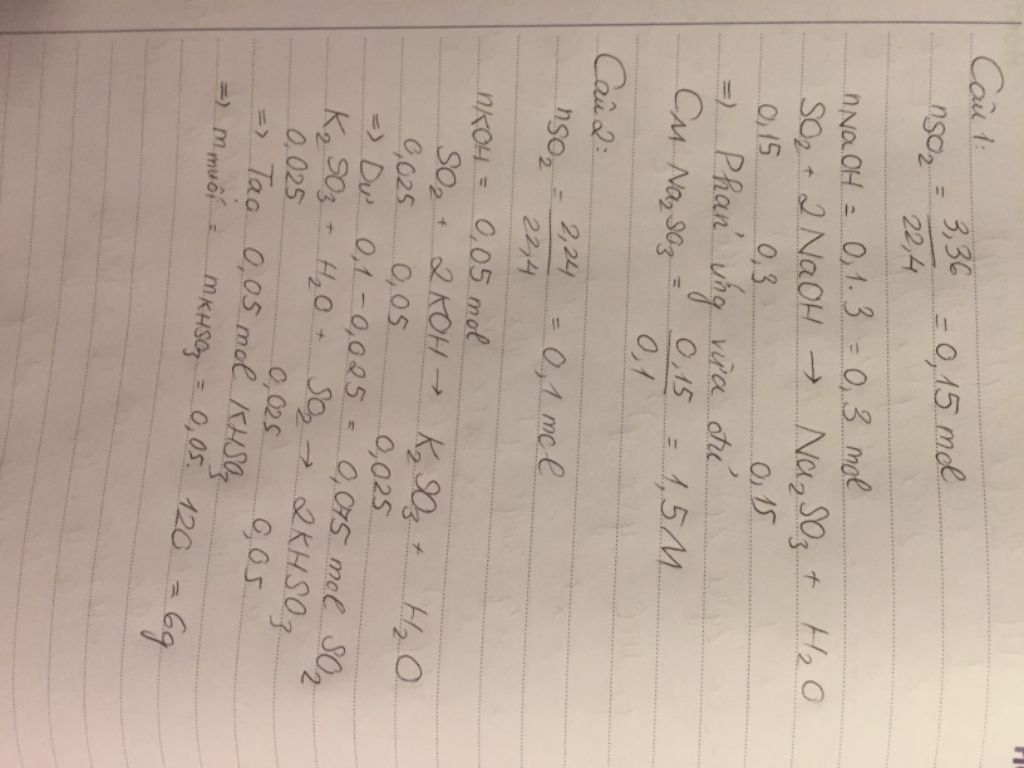 Câu 1:
nSO₂ = 3,36/22,4 = 0,15 mol
nNaOH = 0,1.3 = 0,3 mol
SO₂ + 2NaOH → Na₂SO₃ + H₂O
0,15 0,3 0,15
=) Phản ứng vừa đủ
CM Na₂SO₃ = 0,15/0,1 = 1,5M
Câu 2:
nSO₂ = 2,24/22,4 = 0,1 mol
nKOH = 0,05 mol
SO₂ + 2KOH → K₂SO₃ + H₂O
0,025 0,05 0,025
=) Dư 0,1 - 0,025 = 0,075 mol SO₂
K₂SO₃ + H₂O + SO₂ → 2KHSO₃
0,025 0,025 0,05
=) Tạo 0,05 mol KHSO₃
=) m muối = mKHSO₃ = 0,05. 120 = 6g